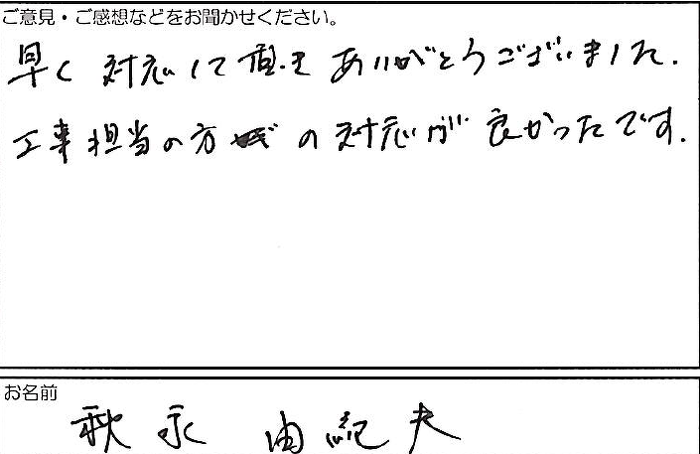 ご意見・ご感想などをお聞かせください。
早く対応して頂きありがとうございました.
工事担当の方の対応が良かったです.
お名前
秋永 由紀夫